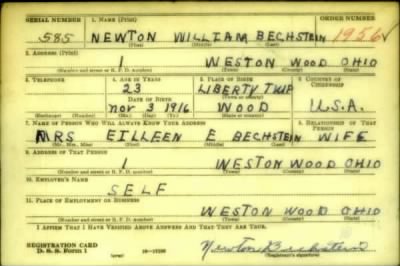 SERIAL NUMBER 1. NAME (Print) ORDER NUMBER
585 NEWTON WILLIAM BECHSTEIN 1956
(First) (Middle) (Last)
2. ADDRESS (Print)
1 WESTON WOOD OHIO
(Number and street or R. F. D. number) (Town) (County) (State)
3. TELEPHONE 4. AGE IN YEARS 5. PLACE OF BIRTH 6. COUNTRY OF CITIZENSHIP
23 LIBERTY TWP
DATE OF BIRTH (Town or county)
NOV 3 1916 WOOD U.S.A.
(Exchange) (Number) (Mo.) (Day) (Yr.) (State or country)
7. NAME OF PERSON WHO WILL ALWAYS KNOW YOUR ADDRESS 8. RELATIONSHIP OF THAT PERSON
MRS EILLEEN E BECHSTEIN WIFE
(Mr., Mrs., Miss) (First) (Middle) (Last)
9. ADDRESS OF THAT PERSON
1 WESTON WOOD OHIO
(Number and street or R. F. D. number) (Town) (County) (State)
10. EMPLOYER'S NAME
SELF
11. PLACE OF EMPLOYMENT OR BUSINESS
WESTON WOOD OHIO
(Number and street or R. F. D. number) (Town) (County) (State)
I AFFIRM THAT I HAVE VERIFIED ABOVE ANSWERS AND THAT THEY ARE TRUE.
REGISTRATION CARD
D. S. S. Form 1 (over) Newton Bechstein
(Registrant's signature)